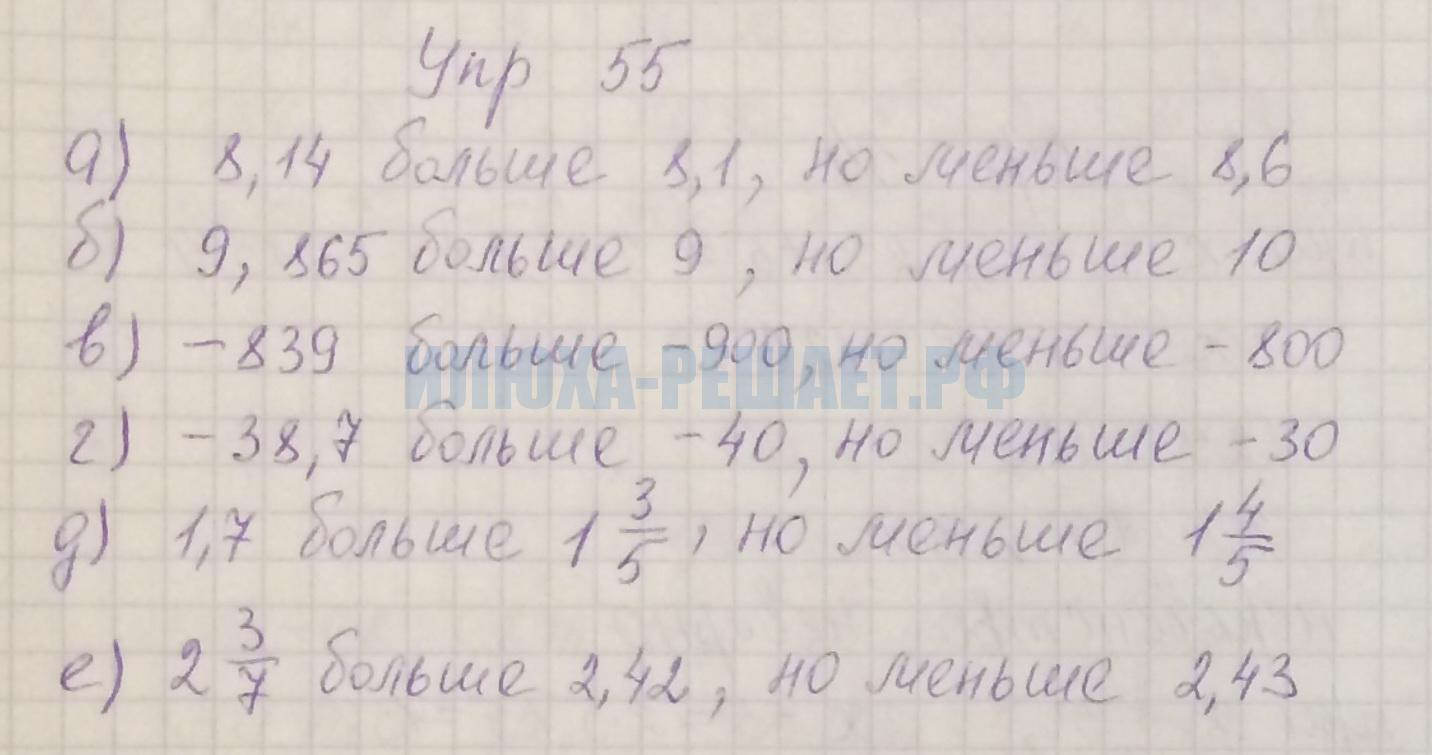 Упр 55
а) 8,14 больше 8,1, но меньше 8,6
б) 9,865 больше 9, но меньше 10
в) -839 больше -900, но меньше -800
ИЛЮХА-РЕШАЕТ.РФ
г) -38,7 больше -40, но меньше -30
д) 1,7 больше 1 3/5, но меньше 1 4/5
е) 2 3/7 больше 2,42, но меньше 2,43